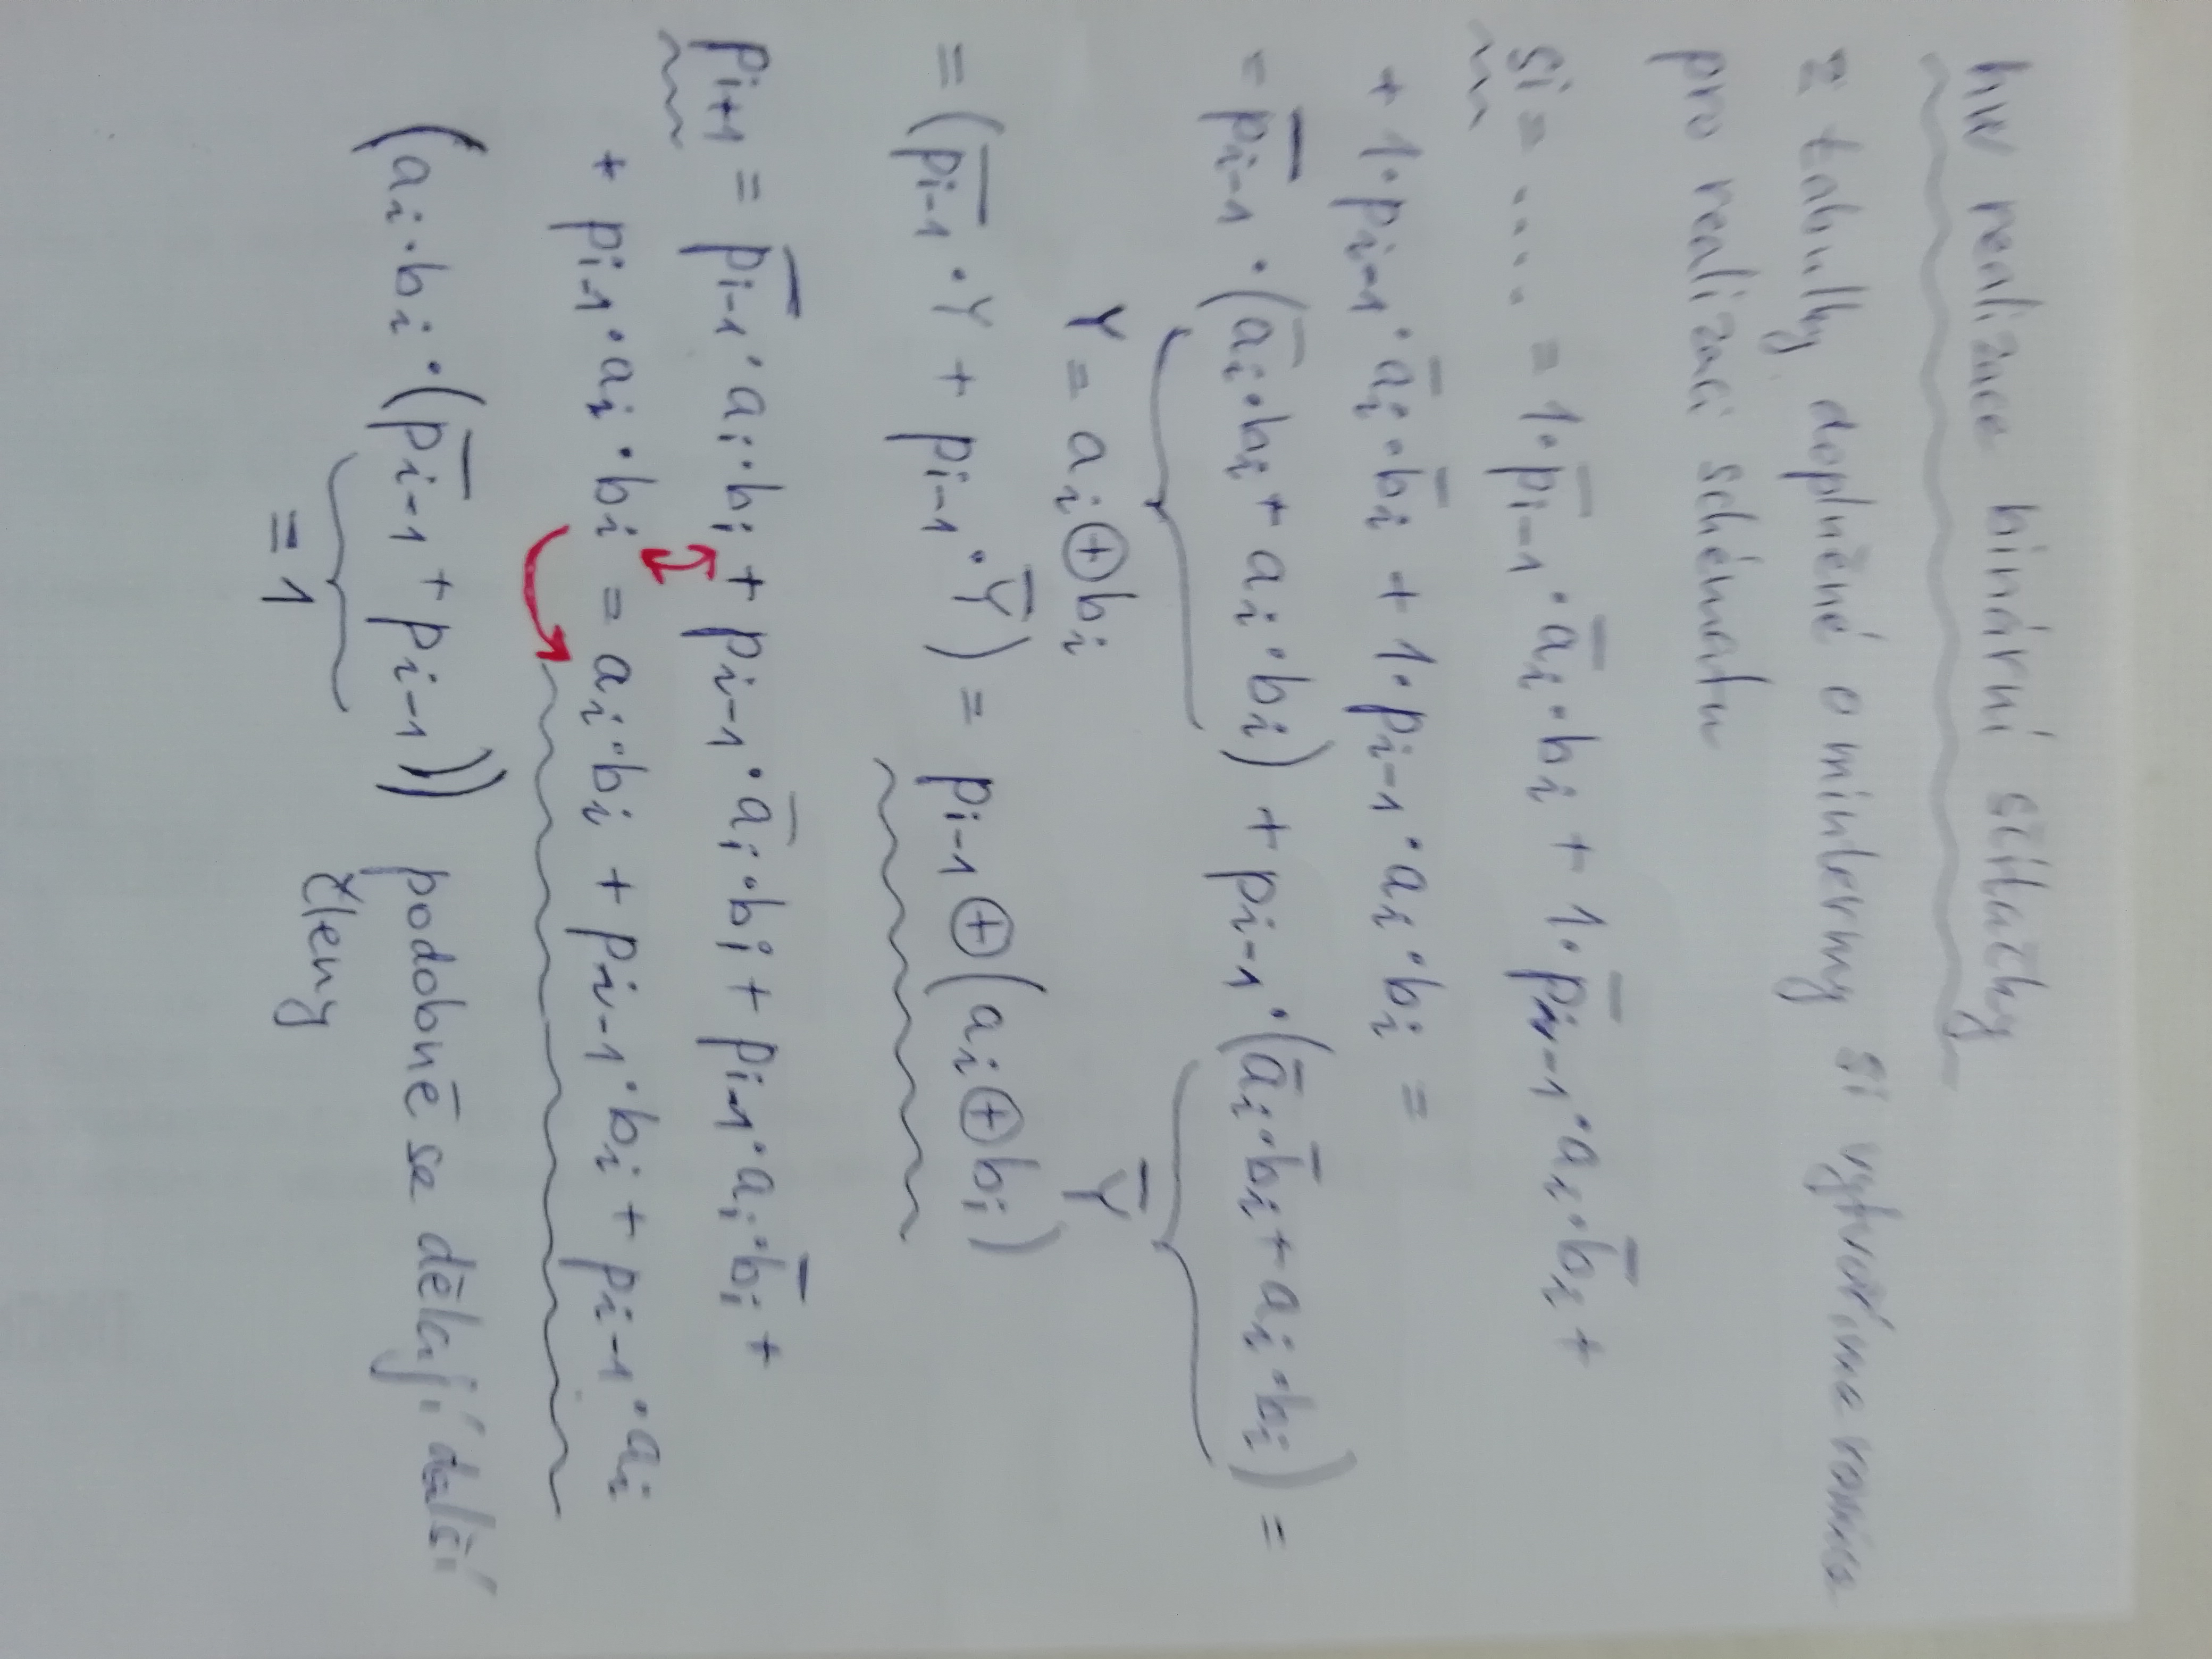 hw realizace binární sčítačky
z tabulky doplněné o mintermy si vytvoříme rovnice
pro realizaci schématu
si = ..... = 1·p̅i-1·a̅i·bi + 1·p̅i-1·ai·b̅i +
+ 1·pi-1·a̅i·b̅i + 1·pi-1·ai·bi =
= p̅i-1·(a̅i·bi + ai·bi) + pi-1·(a̅i·b̅i + ai·bi) =
Y = ai⊕bi Y̅
= (p̅i-1·Y + pi-1·Y̅) = pi-1⊕(ai⊕bi)
pi+1 = p̅i-1·ai·bi + pi-1·a̅i·bi + pi-1·ai·b̅i +
+ pi-1·ai·bi = ai·bi + pi-1·bi + pi-1·ai
(ai·bi·(p̅i-1 + pi-1)) podobně se dělají další
členy
= 1